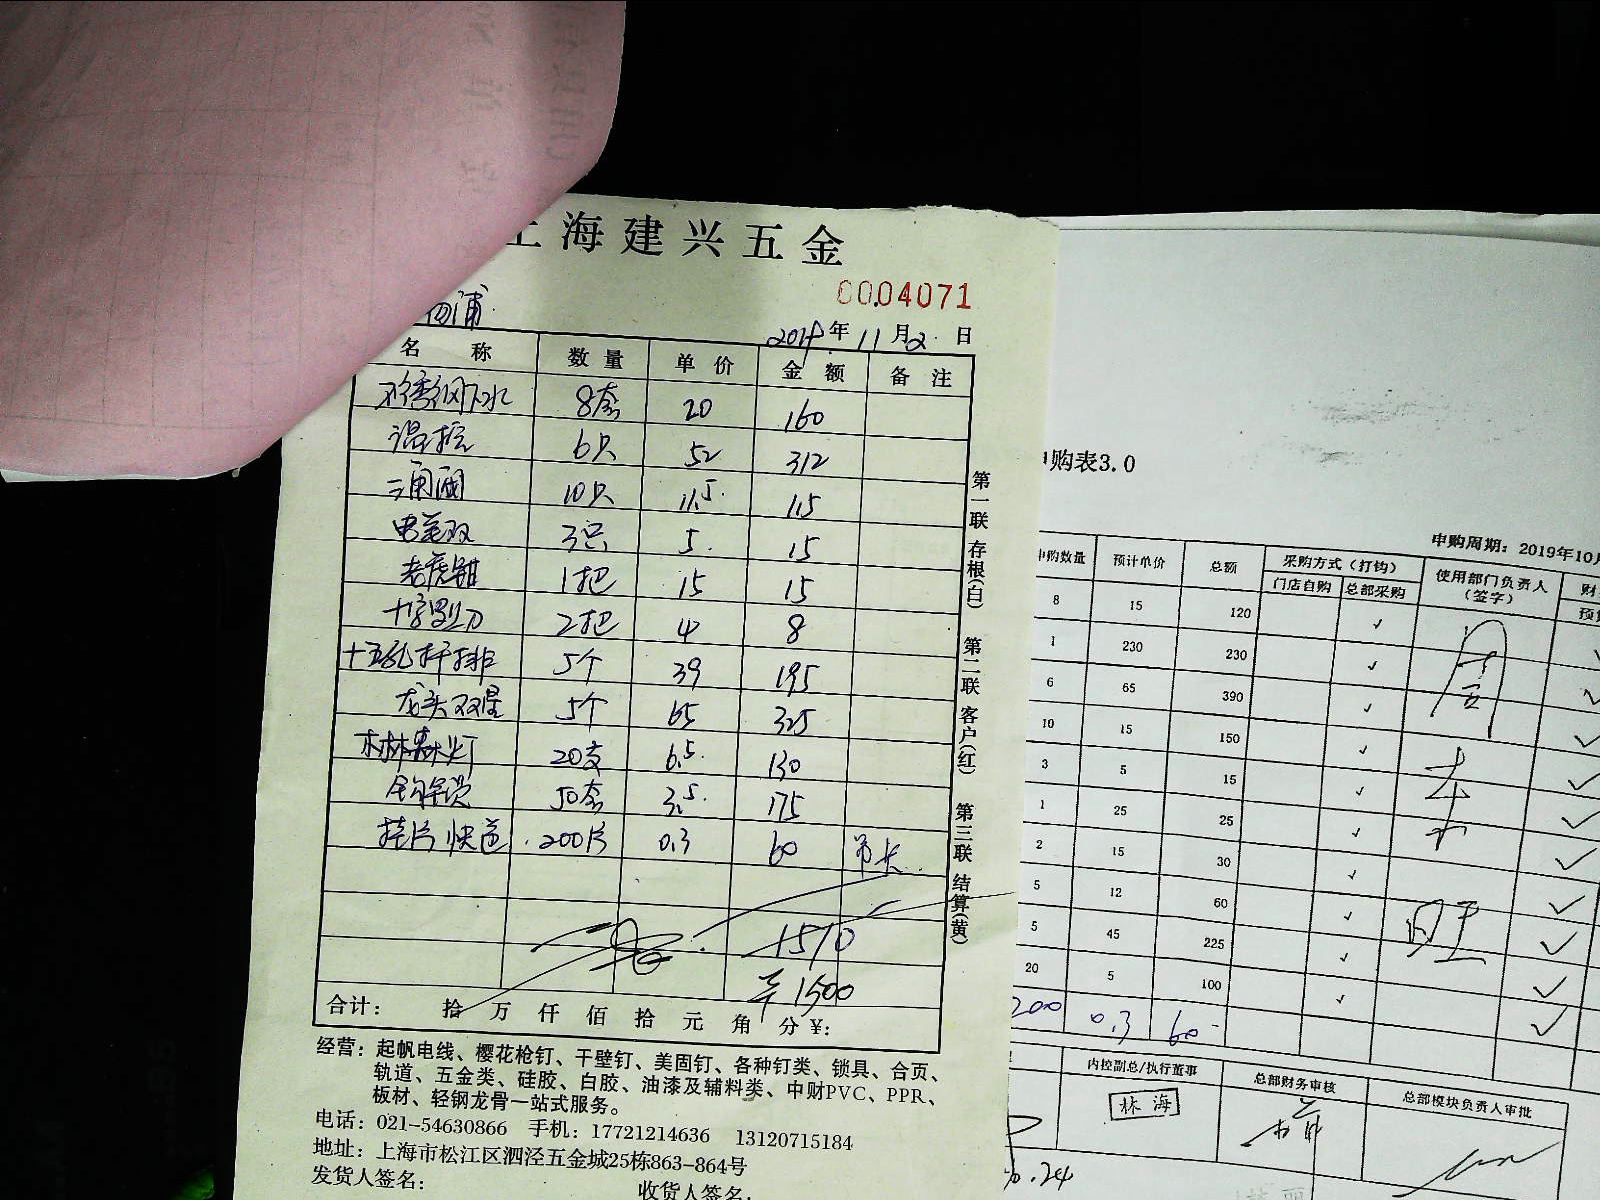 上海建兴五金
0004071
杨浦
2019年11月2日
名称 数量 单价 金额 备注
不锈钢下水 8套 20 160
温控 6只 52 312
三角阀 10只 11.5 115
3只 5. 15
老虎钳 1把 15 15
十字 2把 4 8
十五孔 排 5个 39 195
龙头双 5个 65 325
木林森灯 20支 6.5 130
50套 3.5 175
挂片 快 200片 0.3 60
1510
1500
合计: 拾 万 仟 佰 拾 元 角 分 ¥:
第一联 存根(白) 第二联 客户(红) 第三联 结算(黄)
经营: 起帆电线、樱花枪钉、干壁钉、美固钉、各种钉类、锁具、合页、
轨道、五金类、硅胶、白胶、油漆及辅料类、中财PVC、PPR、
板材、轻钢龙骨一站式服务。
电话: 021-54630866 手机: 17721214636 13120715184
地址: 上海市松江区泗泾五金城25栋863-864号
发货人签名: 收货人签名:
申购表3.0
申购周期: 2019年10月
申购数量 预计单价 总额 采购方式(打钩) 使用部门负责人
门店自购 总部采购 (签字)
8 15 120 ✓
1 230 230 ✓
6 65 390 ✓
10 15 150 ✓
3 5 15 ✓
1 25 25 ✓
2 15 30 ✓
5 12 60 ✓
5 45 225 ✓
20 5 100 ✓
200 0.3 60
内控副总/执行董事 总部财务审核 总部模块负责人审批
林海